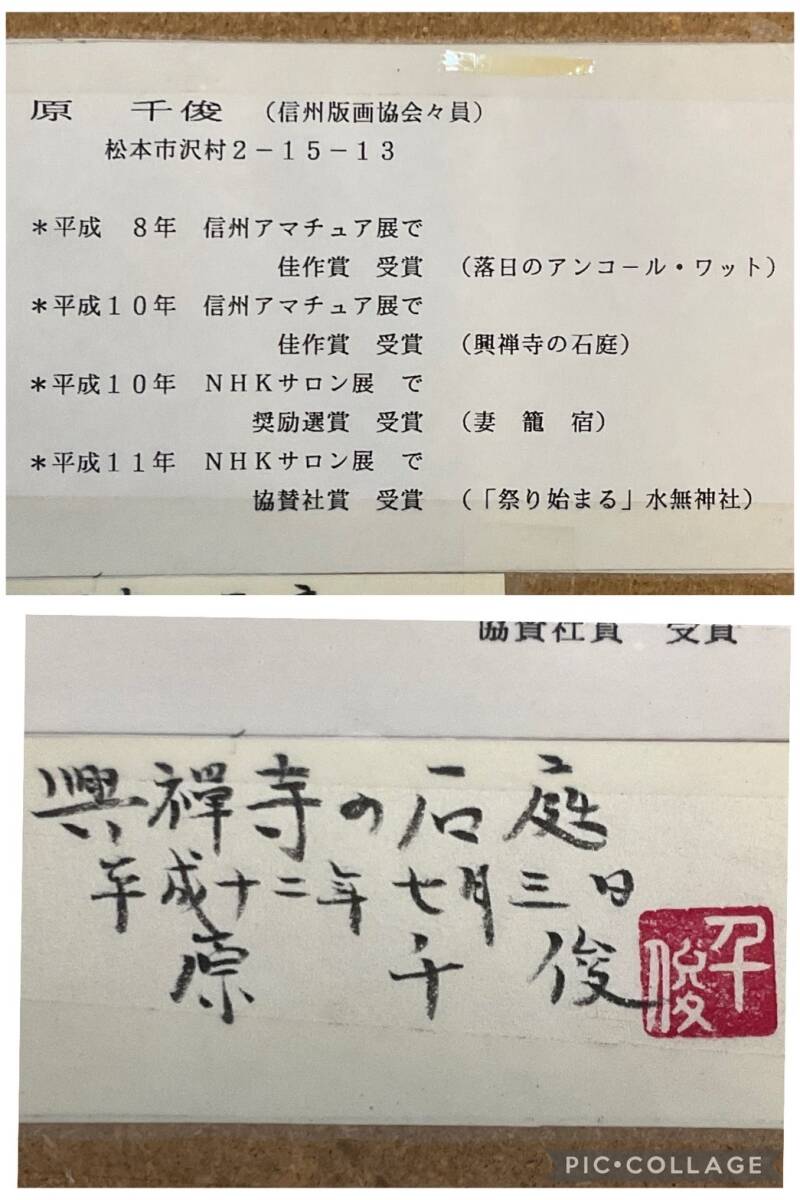 原　千俊　（信州版画協会々員）
松本市沢村２－１５－１３
＊平成　８年　信州アマチュア展で
佳作賞　受賞　（落日のアンコール・ワット）
＊平成１０年　信州アマチュア展で
佳作賞　受賞　（興禅寺の石庭）
＊平成１０年　ＮＨＫサロン展　で
奨励選賞　受賞　（妻　籠　宿）
＊平成１１年　ＮＨＫサロン展　で
協賛社賞　受賞　（「祭り始まる」水無神社）
協賛社賞　受賞
興禅寺の石庭
平成十二年七月三日
原千俊
千俊
PIC•COLLAGE